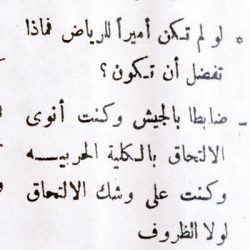 * لو لم تكن أميراً للرياض فماذا
تفضل أن تكون ؟
- ضابطا بالجيش وكنت أنوى
الالتحاق بالكلية الحربيـــه
وكنت على وشك الالتحاق
لولا الظروف